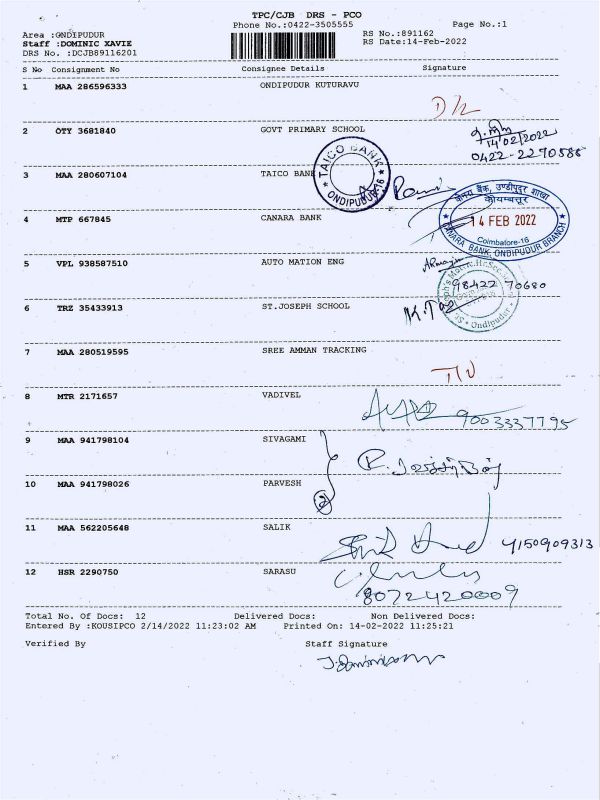 TPC/CJB DRS - PCO
Phone No.:0422-3505555 Page No.:1
Area :GNDIPUDUR RS No.:891162
Staff :DOMINIC XAVIE RS Date:14-Feb-2022
DRS No. :DCJB89116201
S No Consignment No Consignee Details Signature
1 MAA 286596333 ONDIPUDUR KUTURAVU
D/L
2 OTY 3681840 GOVT PRIMARY SCHOOL
14/02/2022
0422-2270585
3 MAA 280607104 TAICO BANK
TAICO BANK
ONDIPUDUR-16
4 MTP 667845 CANARA BANK
केनरा बैंक, उण्डीपुदूर शाखा
कोयम्बत्तूर
14 FEB 2022
Coimbatore-16
CANARA BANK, ONDIPUDUR BRANCH
5 VPL 938587510 AUTO MATION ENG
98422 70680
6 TRZ 35433913 ST.JOSEPH SCHOOL
Ondipudur
7 MAA 280519595 SREE AMMAN TRACKING
8 MTR 2171657 VADIVEL
9003337795
9 MAA 941798104 SIVAGAMI
10 MAA 941798026 PARVESH
11 MAA 562205648 SALIK
9150909313
12 HSR 2290750 SARASU
8072420009
Total No. Of Docs: 12 Delivered Docs: Non Delivered Docs:
Entered By :KOUSIPCO 2/14/2022 11:23:02 AM Printed On: 14-02-2022 11:25:21
Verified By Staff Signature